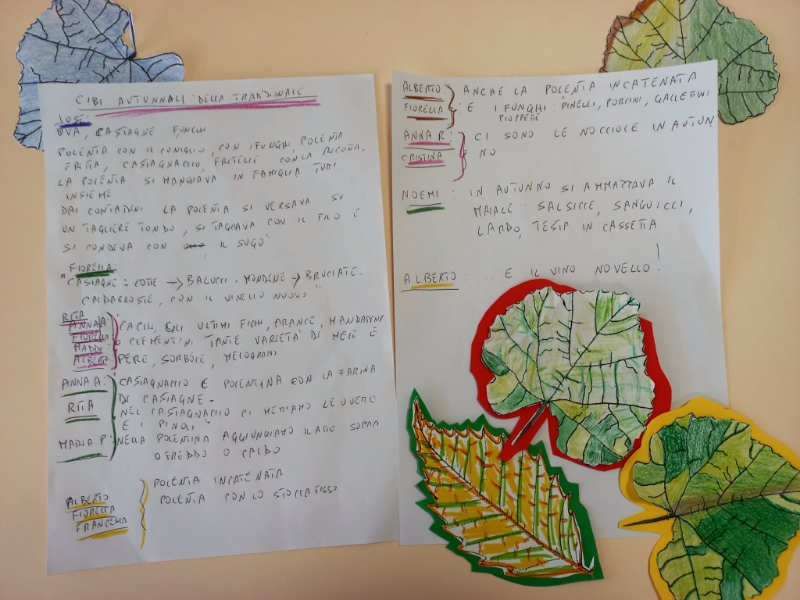 CIBI AUTUNNALI DELLA TRADIZIONALE
JOSE:
UVA, CASTAGNE FUNGHI.
POLENTA CON IL CONIGLIO, CON I FUNGHI, POLENTA
FRITTA, CASTAGNACCIO, FRITELLE CON LA RICOTTA.
LA POLENTA SI MANGIAVA IN FAMIGLIA TUTTI
INSIEME
DAI CONTADINI LA POLENTA SI VERSAVA SU
UN TAGLIERE TONDO, SI TAGLIAVA CON IL FILO E
SI CONDIVA CON IL SUGO
"FIORELLA
CASTAGNE: COTTE → BALUCCI. MONDINE → BRUCIATE.
CALDARROSTE, CON IL VINELLO NUOVO"
RITA
ANNA A.
FIORELLA
ALBERTO
CACHI, GLI ULTIMI FICHI, ARANCE, MANDARINI
E CLEMENTINI. TANTE VARIETÀ DI MELE E
PERE, SORBOLE, MELOGRANO
ANNA A:
RITA
MARIA P:
CASTAGNACCIO E POLENTINA CON LA FARINA
DI CASTAGNE.
NEL CASTAGNACCIO CI METTIAMO LE UVETTE
E I PINOLI
NELLA POLENTINA AGGIUNGIAMO IL LATTE SOPRA
O FREDDO O CALDO
ALBERTO
FIORELLA
FRANCESCA
POLENTA INCATENATA
POLENTA CON LO STOCCAFISSO
ALBERTO
FIORELLA
ANCHE LA POLENTA INCATENATA
E I FUNGHI: PINELLI, PORCINI, GALLETTINI
PIOPPETTI
ANNA R:
CRISTINA
CI SONO LE NOCCIOLE IN AUTUN
NO
NOEMI: IN AUTUNNO SI AMMAZZAVA IL
MAIALE: SALSICCE, SANGUICCI,
LARDO, TESTA IN CASSETTA
ALBERTO: .... E IL VINO NOVELLO!